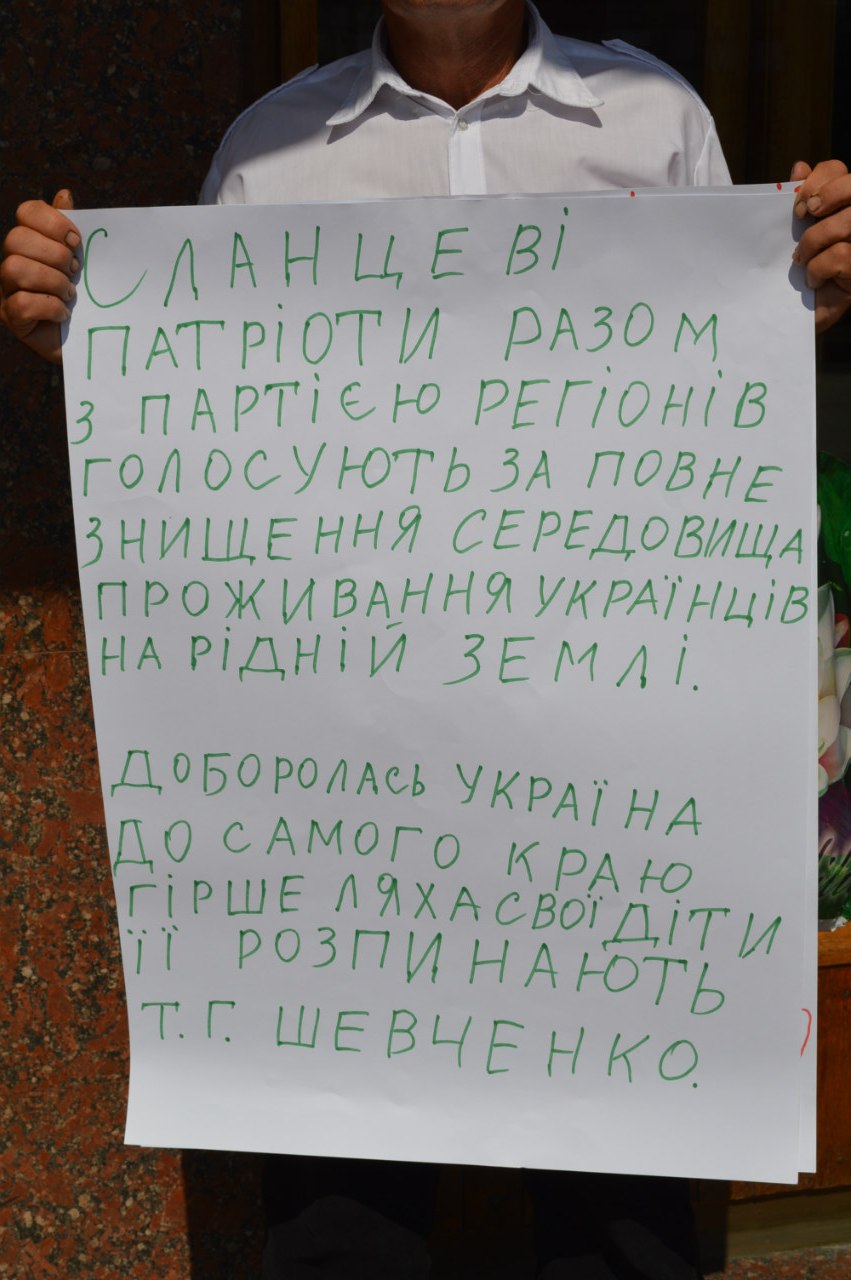 СЛАНЦЕВІ
ПАТРІОТИ РАЗОМ
З ПАРТІЄЮ РЕГІОНІВ
ГОЛОСУЮТЬ ЗА ПОВНЕ
ЗНИЩЕННЯ СЕРЕДОВИЩА
ПРОЖИВАННЯ УКРАЇНЦІВ
НА РІДНІЙ ЗЕМЛІ.
ДОБОРОЛАСЬ УКРАЇНА
ДО САМОГО КРАЮ
ГІРШЕ ЛЯХА СВОЇ ДІТИ
ЇЇ РОЗПИНАЮТЬ
Т.Г. ШЕВЧЕНКО.